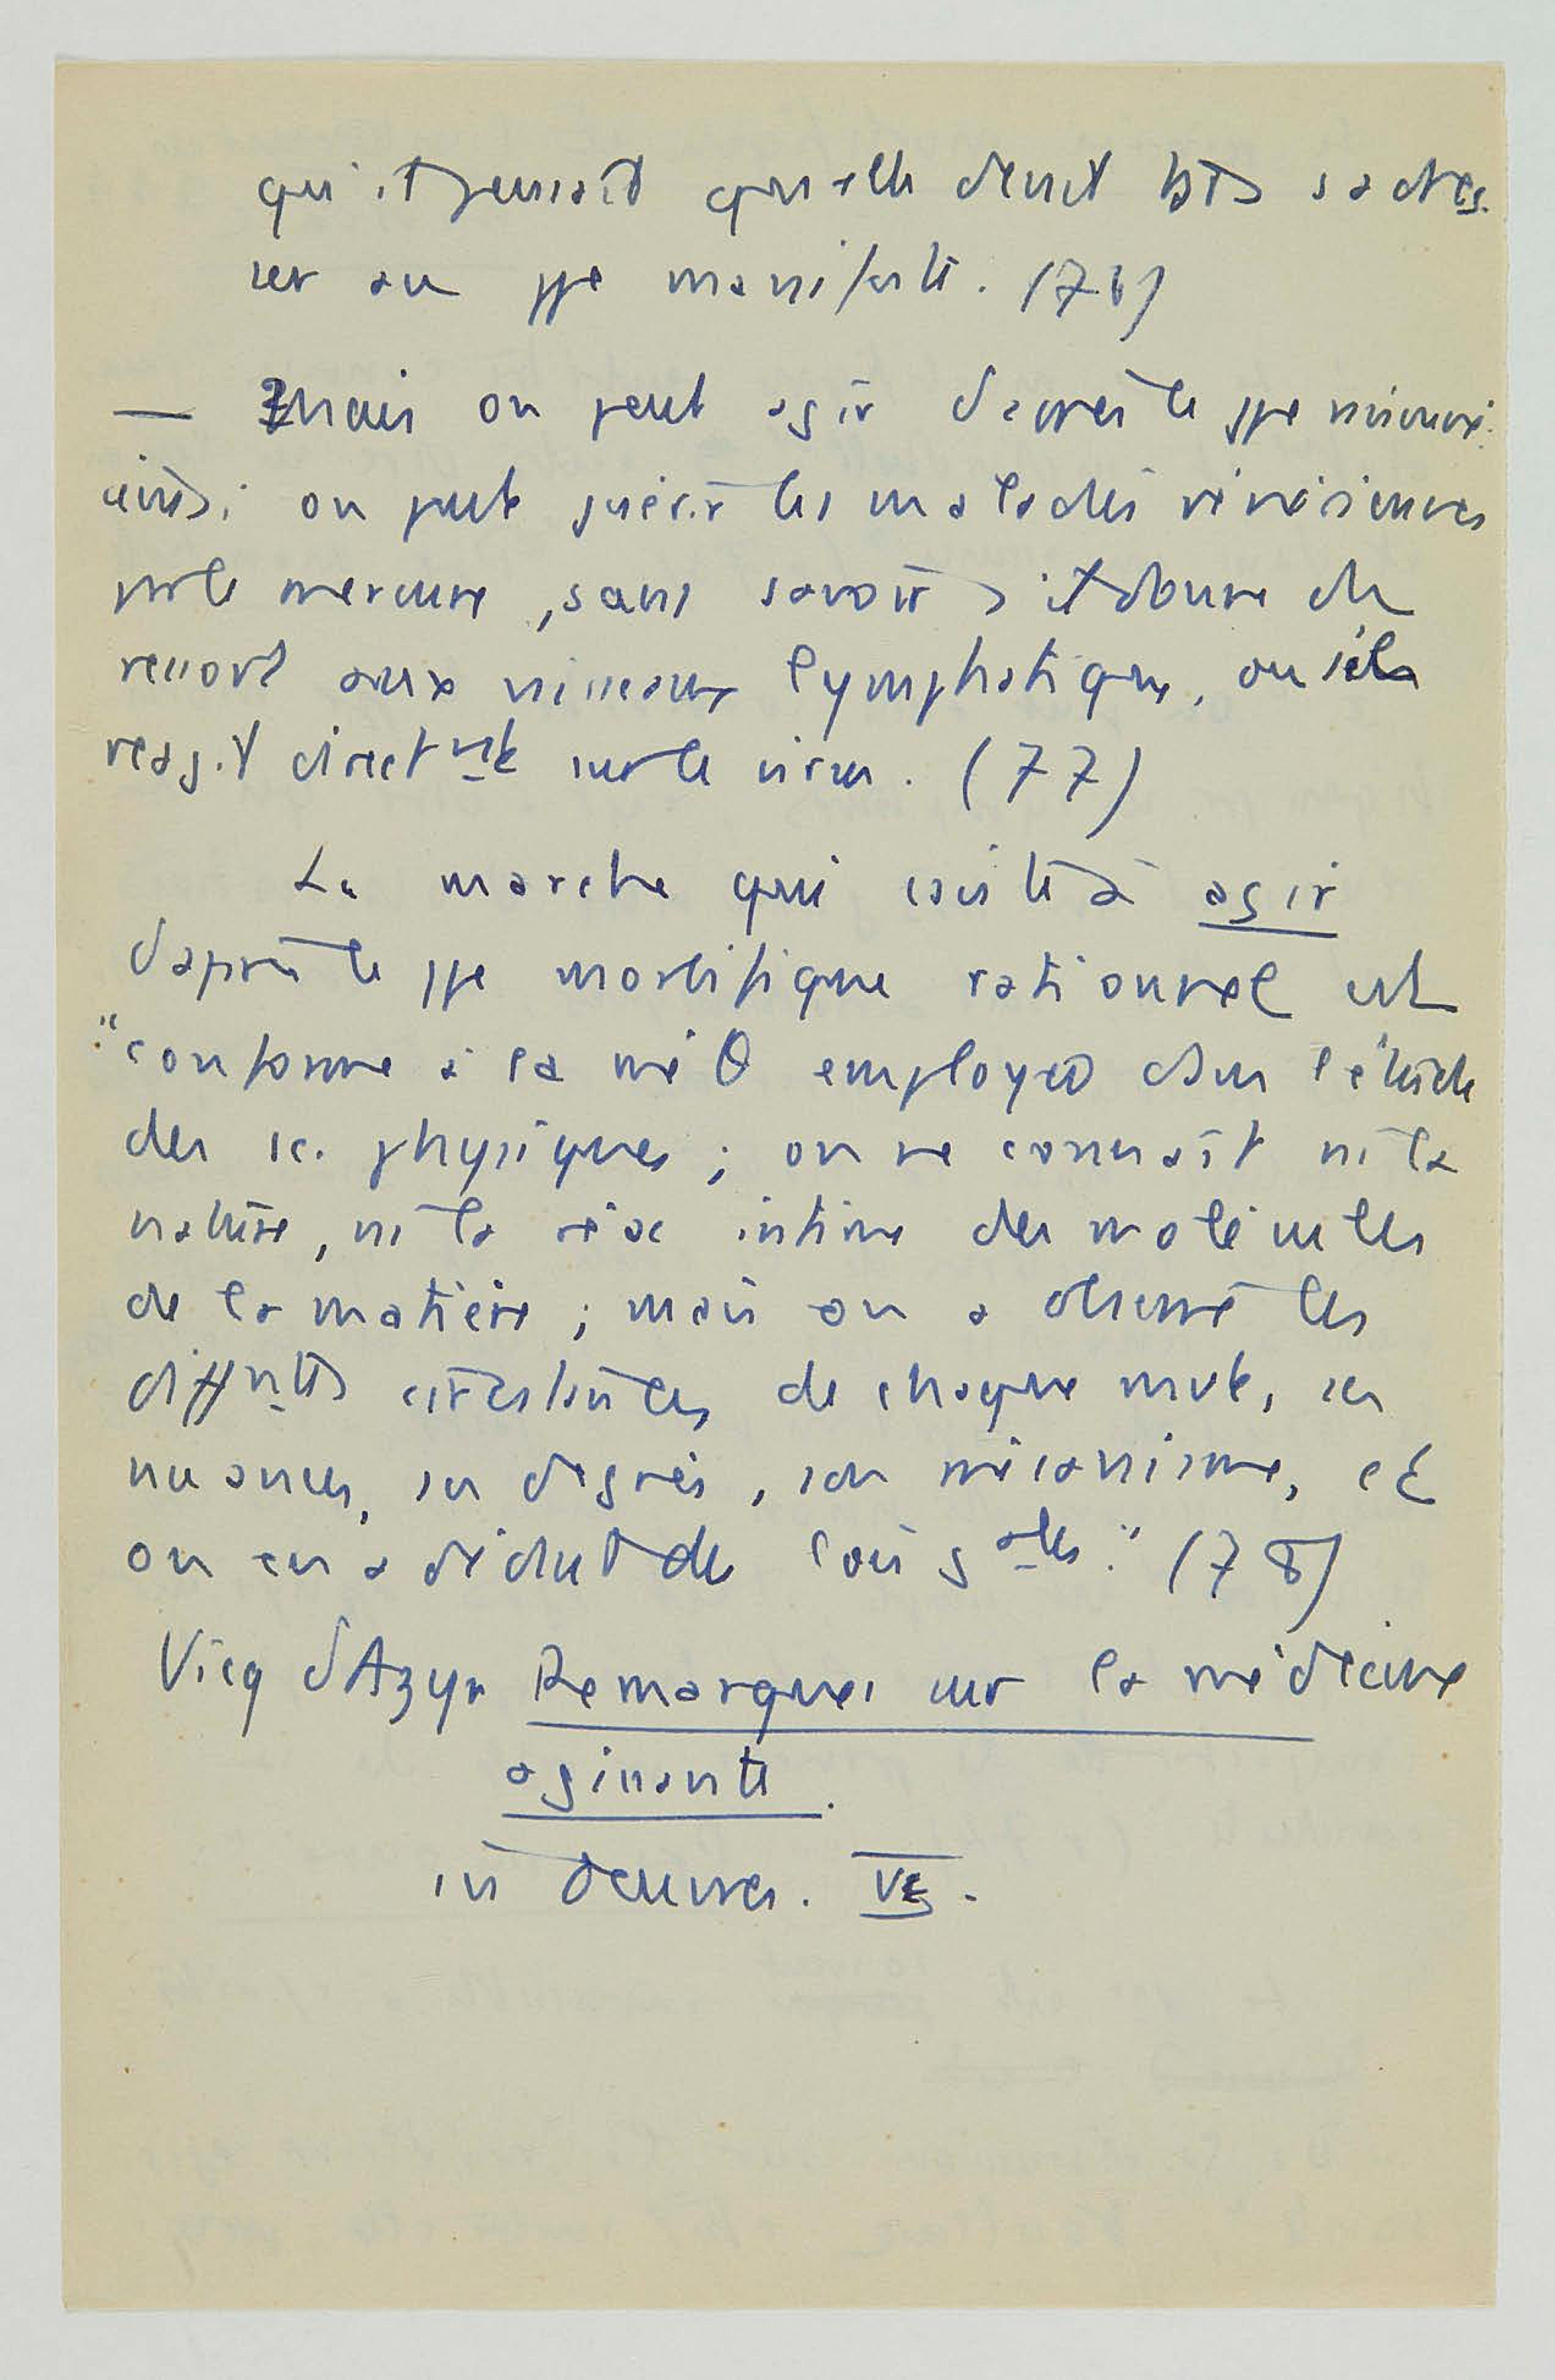 qui pensait qu'elle devait ts s'adres-
ser au ppe manifeste. (76)
— mais on peut agir d'après le ppe
ainsi on peut guérir les maladies vénériennes
par le mercure, sans savoir s'il donne du
ressort aux vaisseaux lymphatiques, ou s'il
réagit directmt sur le virus. (77)
La marche qui consiste à agir
d'après le ppe morbifique rationnel est
"conforme à la méθ employée dans l'étude
des sc. physiques ; on ne connaît ni la
nature, ni la réac intime des molécules
de la matière ; mais on a observé les
difftes circstances de chaque mvt, ses
nuances, ses degrés, son mécanisme, et
on en a déduit des lois gales." (78)
Vicq d'Azyr Remarques sur la médecine
agissante.
in Oeuvres. V.